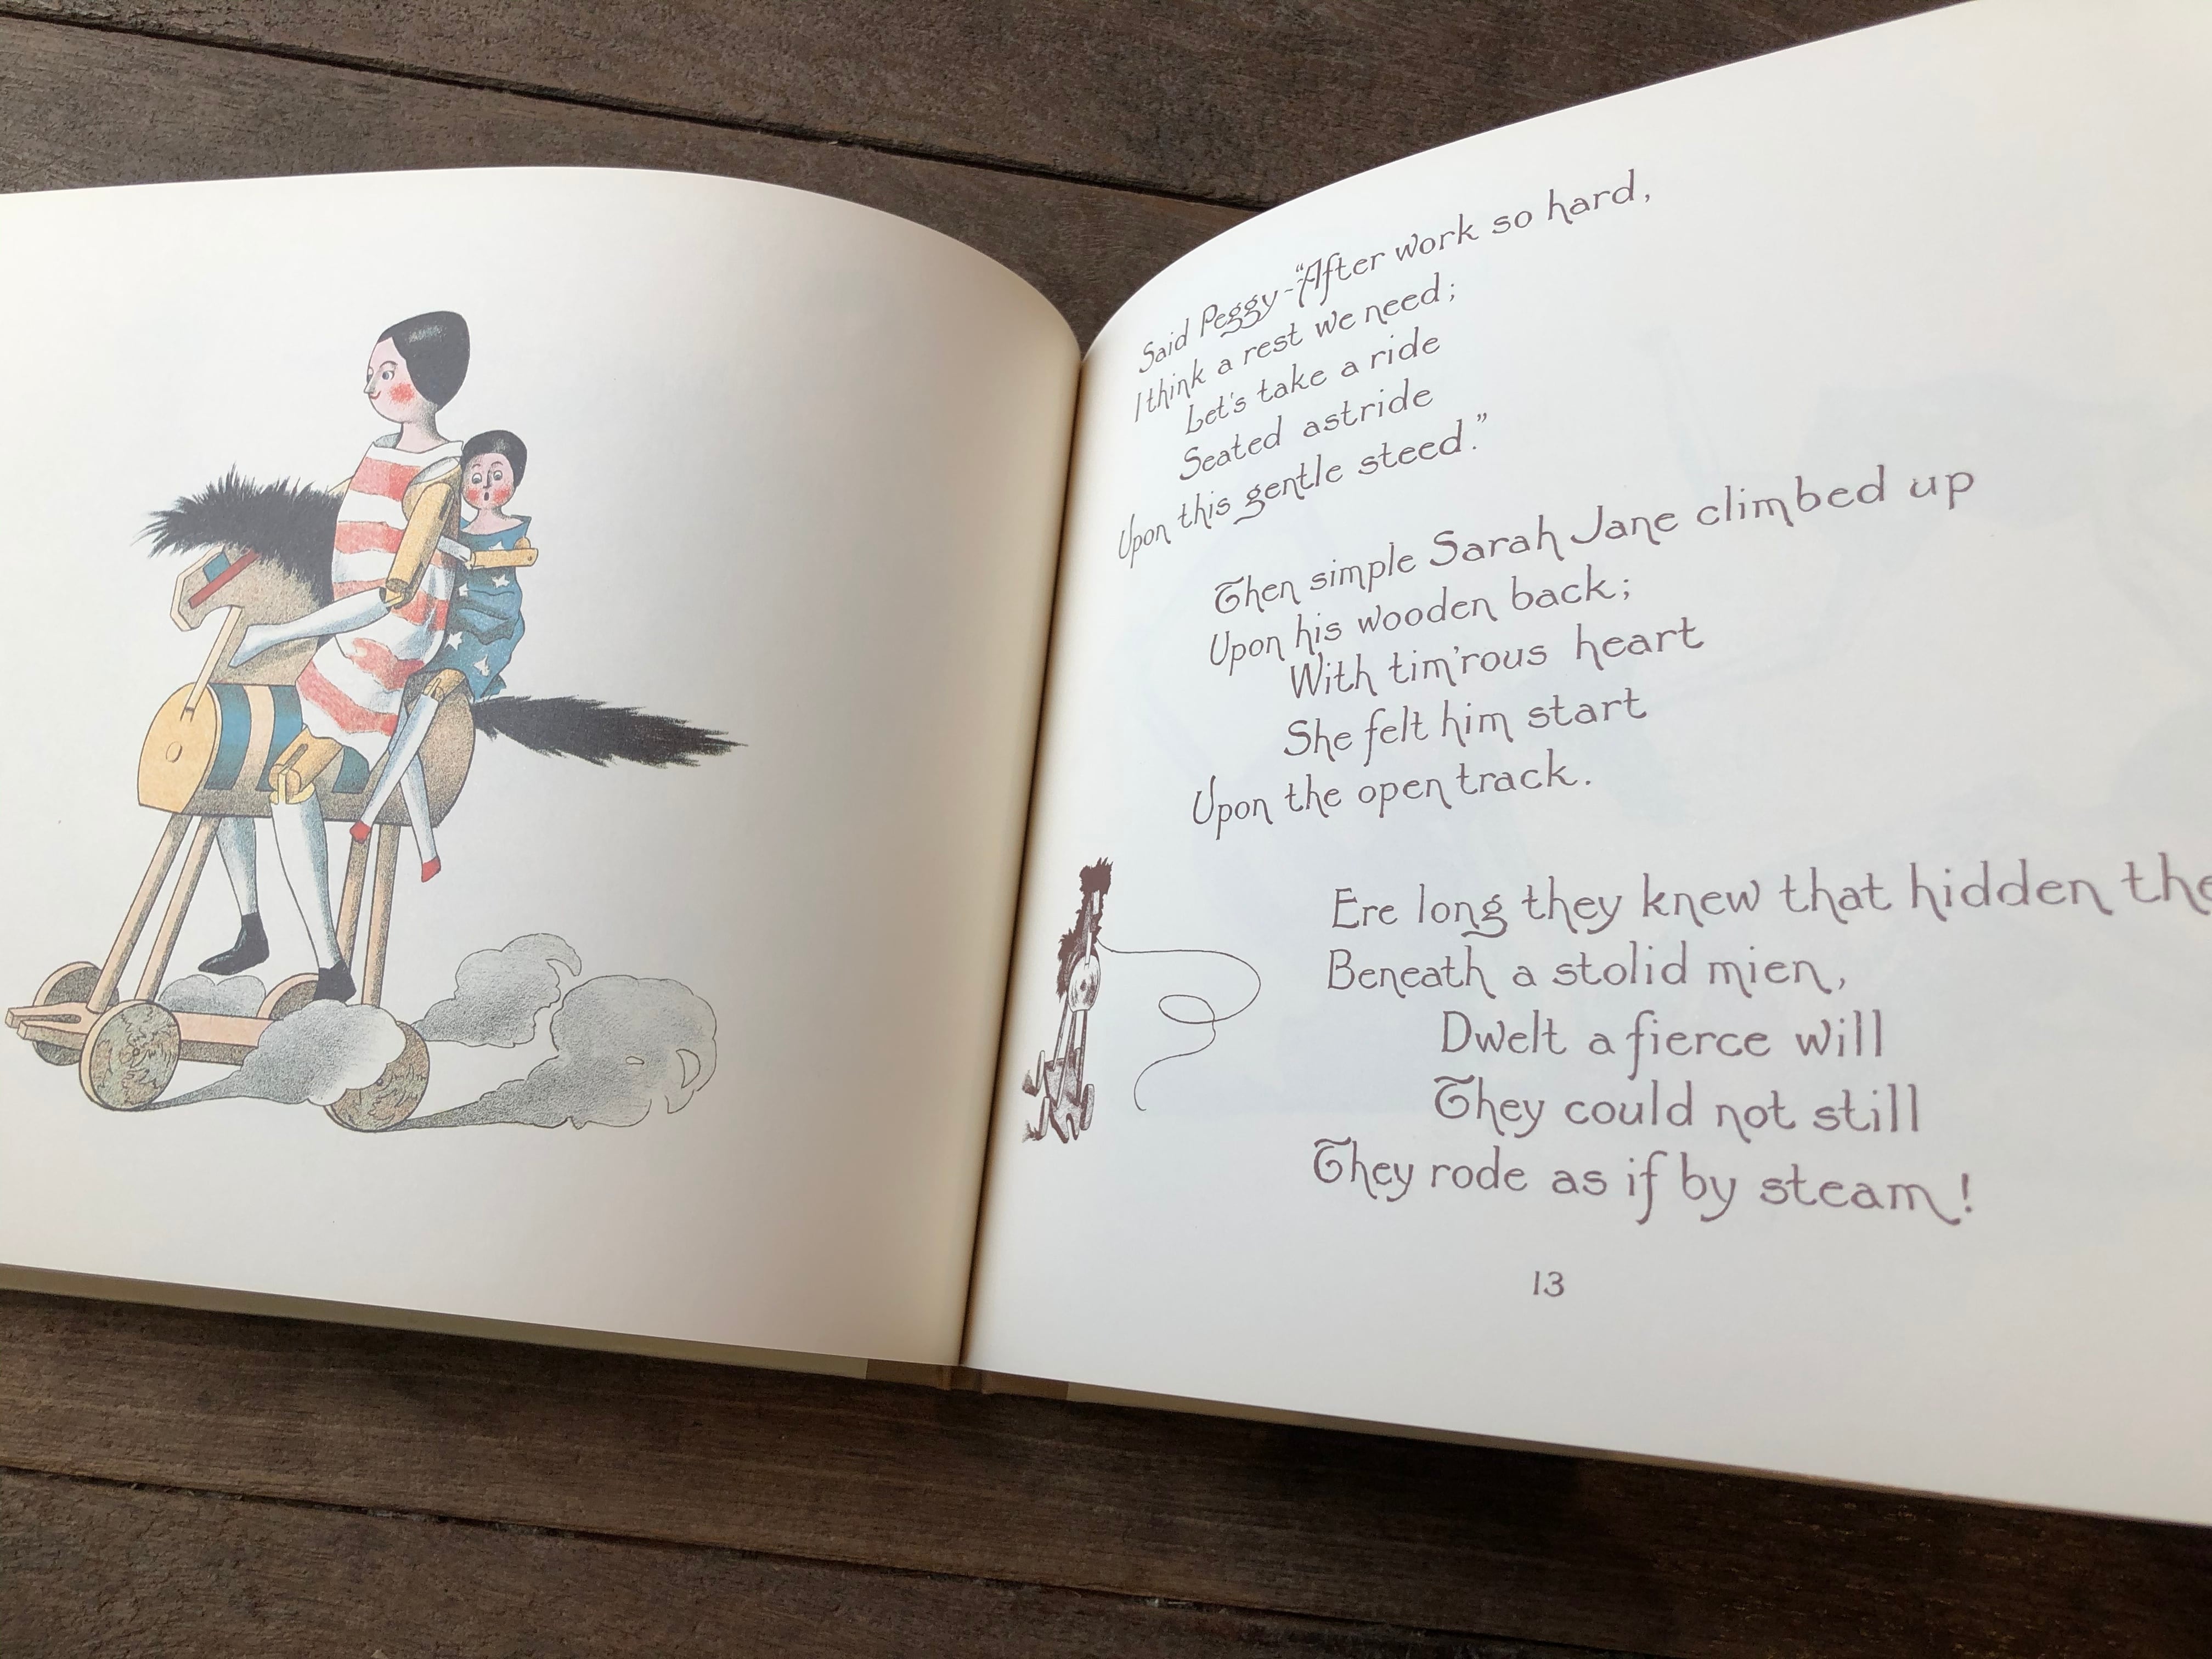 Said Peggy - "After work so hard,
I think a rest we need;
Let's take a ride
Seated astride
Upon this gentle steed."
Then simple Sarah Jane climbed up
Upon his wooden back;
With tim'rous heart
She felt him start
Upon the open track.
Ere long they knew that hidden
Beneath a stolid mien,
Dwelt a fierce will
They could not still
They rode as if by steam!
13